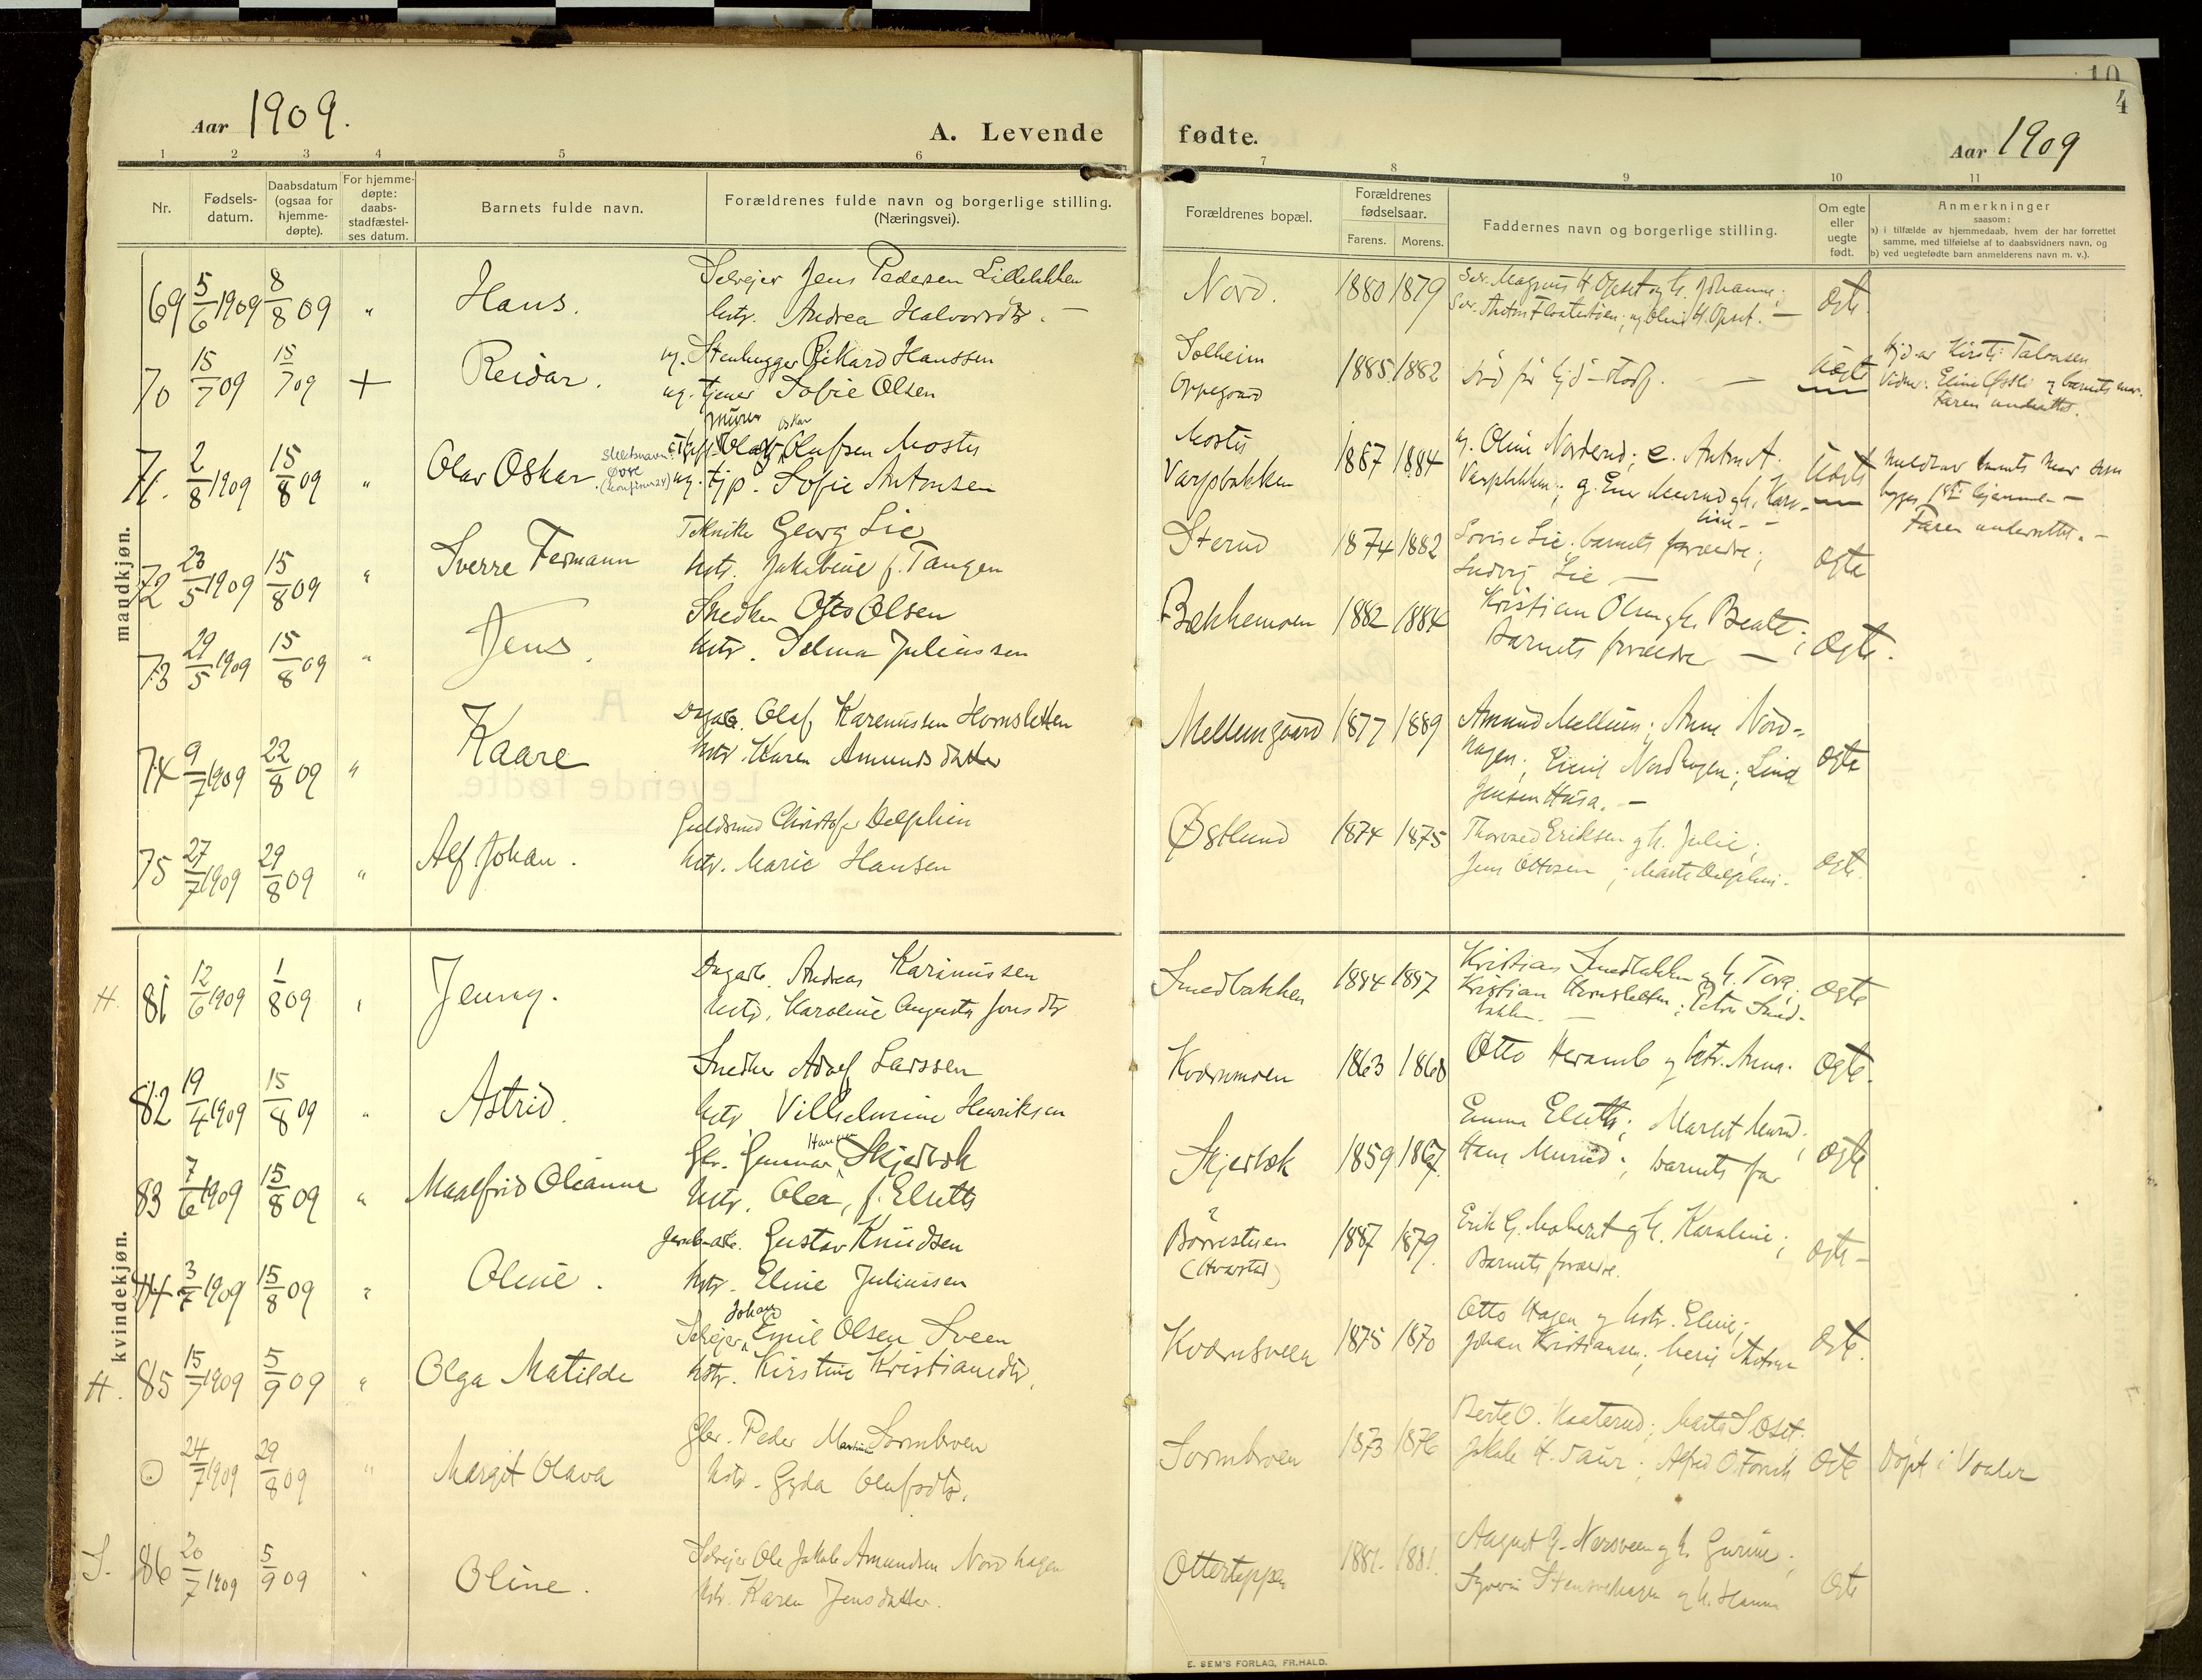 10
4
Aar 1909.
A. Levende fødte.
Aar 1909
1 2 3 4 5 6 7 8 9 10 11
Nr.
Fødsels-
datum.
Daabsdatum
(ogsaa for
hjemme-
døpte).
For hjemme-
døpte:
daabs-
stadfæstel-
ses datum.
Barnets fulde navn.
Forældrenes fulde navn og borgerlige stilling.
(Næringsvei).
Forældrenes bopæl.
Forældrenes
fødselsaar.
Farens. Morens.
Faddernes navn og borgerlige stilling.
Om egte
eller
uegte
født.
Anmerkninger
saasom:
a) i tilfælde av hjemmedaab, hvem der har forrettet
samme, med tilføielse af to daabsvidners navn, og
b) ved uegtefødte barn anmelderens navn m. v.).
mandkjøn.
69 5/6 1909 8/8 09 " Hans.
Selvejer Jens Pedersen Lillebakken
hstr. Andrea Halvorsdtr. —
Nord. 1880 1879
Selv. Magnus H. Opset og h. Johanne;
og Oline H. Opset. —
Egte
70 15/7 09 15/7 09 + Reidar.
ug. Stenhugger Rikard Hanssen
ug. tjener Sofie Olsen
Solheim
Oppegaard
1885 1882
død før — Uegte
Hjd. av Kirsti Talmsen
Vidner: Eline og barnets mor.
Faren underrettet.
71. 2/8 1909 15/8 09 " Olav Oskar.
Slektsnavn:
Øvre
(konfirm 24)
murer Oskar
Olaf Olufsen Mostu
ug. tjp. Sofie Antonsen
Mostu
Varpbakken
1887 1884
ug. Oline Norderud; e. Anton A.
Varpbakken; g. Einar Murud og h. Karo-
line. —
Uegte
Meldt av barnets mor som
bygger hjemme. —
Faren underrettet. —
72 23/5 1909 15/8 09 " Sverre Fermann
Tekniker Georg Lie
hstr. Jakobine f. Tangen
Sterud 1874 1882
Lovise Lie; barnets forældre;
Ludvig Lie —
Egte
73 29/5 1909 15/8 09 " Jens.
Snedker Otto Olsen
hstr. Selma Juliussen
Bækkemoen 1882 1884
Kristian Olsen og h. Beate;
Barnets forældre —
Egte.
74 9/7 1909 22/8 09 " Kaare
Dagarb. Olaf Karenussen Hornsletten
hstr. Karen Amundsdatter
Mellemgaard 1877 1889
Amund Mellem; Anne Nord-
hagen; Emil Nordhagen; Lina
Jensen Husa. —
Egte
75 27/7 1909 29/8 09 " Alf Johan.
Guldsmed Christofer Delphin
hstr. Marie Hansen
Østlund 1874 1875
Thorvald Eriksen og h. Julie;
Jens Ottosen; Marte Delphin.
Egte.
kvindekjøn.
H. 81 12/6 1909 1/8 09 " Jenny.
Dagarb. Andreas Karinussen
hstr. Karoline Augusta Jonsdtr
Smedbakken 1884 1887
Kristian Smedbakken og h. Tora;
Kristian Hornsletten; Petra Smed-
bakken. —
Egte
82 19/4 1909 15/8 09 " Astrid.
Snedker Adolf Larssen
hstr. Vilhelmine Henriksen
Kvernmoen 1863 1868
Otto Heramb og hstr. Anna.
Egte.
83 7/6 1909 15/8 09 " Maalfrid Oleanna
Gbr. Gunnar Hansen Skjerbæk
hstr. Olea, f. Elsetts
Skjerbæk 1859 1867.
Emma Elsetts; Marget Murud;
Hans Murud; barnets far
Egte
84 3/7 1909 15/8 09 " Oline.
Jernb.arb. Gustav Knudsen
hstr. Eline Juliussen
Børrestuen
(Hvarstad)
1887 1879.
Erik G. Moherat og h. Karoline;
Barnets forældre.
Egte —
H. 85 15/7 1909 5/9 09 " Olga Matilde
Selvejer Johan Emil Olsen Sveen
hstr. Kirstine Kristiansdtr.
Kvernsveen 1875 1870
Otto Hagen og hstr. Eline;
Johan Kristiansen;
Egte.
0 24/7 1909 29/8 09 " Margit Olava
Gbr. Peder Martinus Sormbroen
hstr. Gyda Olufsdtr.
Sormbroen 1873 1876
Berte O. Kaaterud; Marte
Jakob H. Saur; Alfred O.
Egte
Døpt i Vaaler
S. 86 20/7 1909 5/9 09 " Oline.
Selvejer Ole Jakob Amundsen Nordhagen
hstr. Karen Jensdatter.
Otterteppen 1881. 1881.
August G. Nersveen og h. Gurine;
Syverin Stensvehagen og h. Hanna
Egte
E. SEM'S FORLAG, FR.HALD.